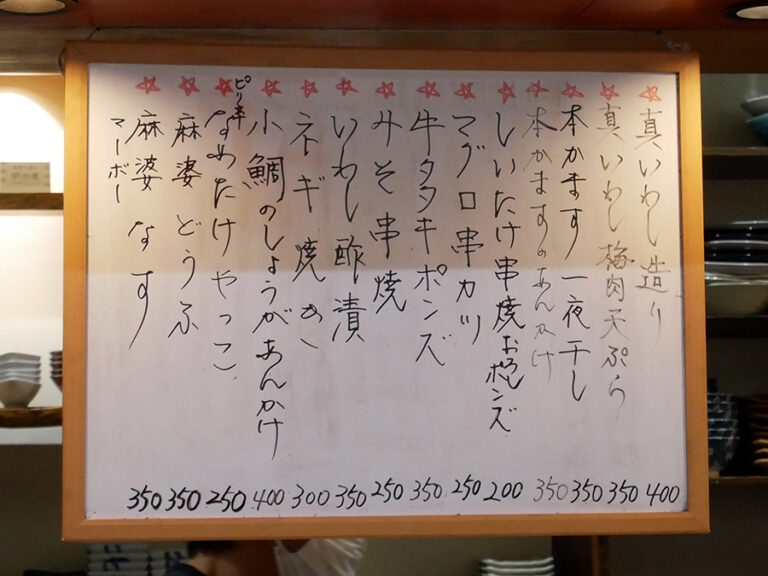 真いわし造り 400
真いわし梅肉天ぷら 350
本かます一夜干し 350
本かますのあんかけ 350
しいたけ串焼おろしポンズ 200
マグロ串カツ 250
牛タタキポンズ 350
みそ串焼 250
いわし酢漬 350
ネギ焼き 300
小鯛のしょうがあんかけ 400
ピリ辛なめたけやっこ 250
麻婆どうふ 350
麻婆なす 350
マーボー